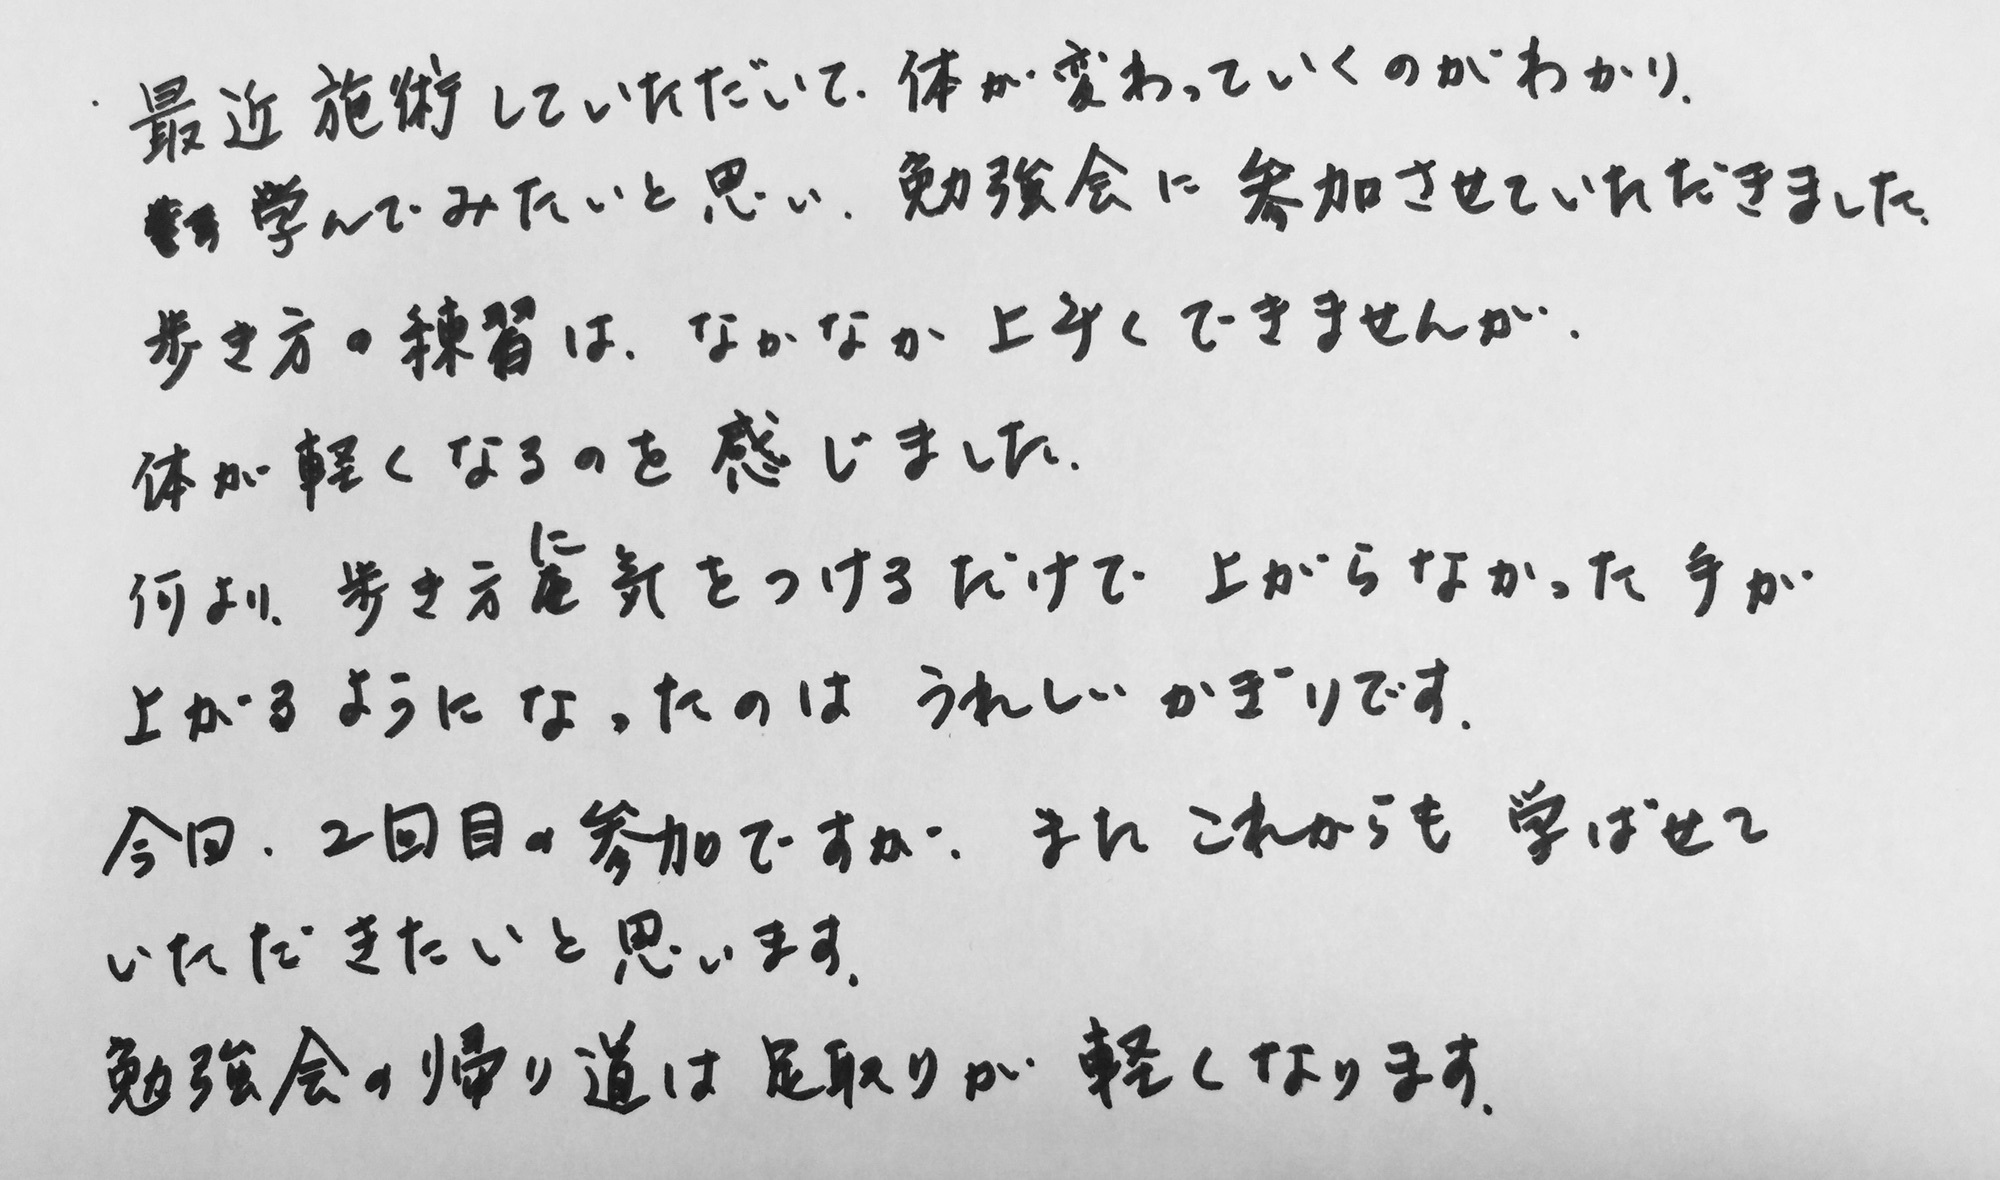 最近施術していただいて、体が変わっていくのがわかり、
学んでみたいと思い、勉強会に参加させていただきました。
歩き方の練習は、なかなか上手くできませんが、
体が軽くなるのを感じました。
何より、歩き方に気をつけるだけで上がらなかった手が
上がるようになったのはうれしいかぎりです。
今回、2回目の参加ですが、またこれからも学ばせて
いただきたいと思います。
勉強会の帰り道は足取りが軽くなります。